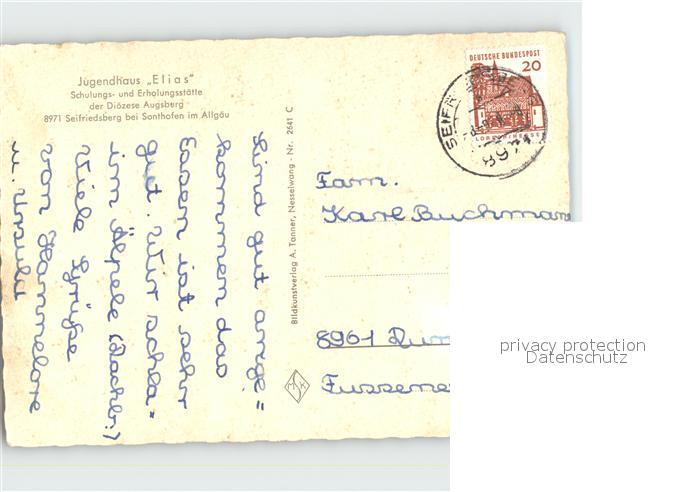 Jugendhaus „Elias"
Schulungs- und Erholungsstätte
der Diözese Augsberg
8971 Seifriedsberg bei Sonthofen im Allgäu
DEUTSCHE BUNDESPOST
20
SEIFR
8971
Sind gut ange=
kommen das
Essen ist sehr
gut. Wir schla=
im Älpele (Dachbr.)
Viele Grüße
von Hannelore
u. Ursula
Bildkunstverlag A. Tanner, Nesselwang - Nr. 2641 C
Fam.
Karl Buchman
8961
Fussene
privacy protection
Datenschutz